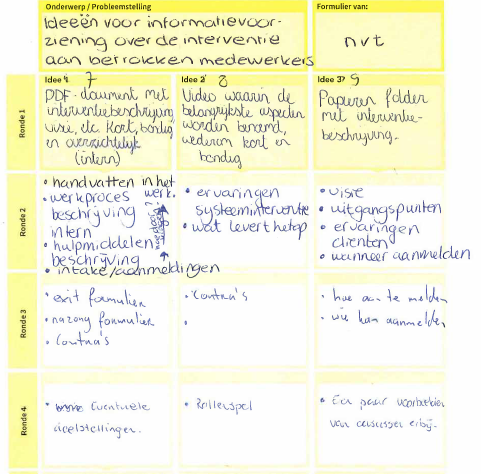 Onderwerp / Probleemstelling
Ideeën voor informatievoor-
ziening over de interventie
aan betrokken medewerkers
Formulier van:
nvt
Ronde 1
Idee 1 7
PDF-document met
interventiebeschrijving
visie, etc. Kort, bondig
en overzichtelijk
(intern)
Idee 2 8
Video waarin de
belangrijkste aspecten
worden benoemd,
wederom kort en
bondig
Idee 3 9
Papieren folder
met interventie-
beschrijving.
Ronde 2
• handvatten in het
werk.
• werkproces
beschrijving
intern
• hulpmiddelen
beschrijving
• intake/aanmeldingen
• ervaringen
systeeminterventie
• wat levert het op
• visie
• uitgangspunten
• ervaringen
cliënten
• wanneer aanmelden
Ronde 3
• exit formulier
• nazorg formulier
• Contra's
• Contra's
•
• hoe aan te melden
• wie kan aanmelden
Ronde 4
• Eventuele
doelstellingen.
• Rollenspel
• Een paar voorbeelden
van cursussen erbij.